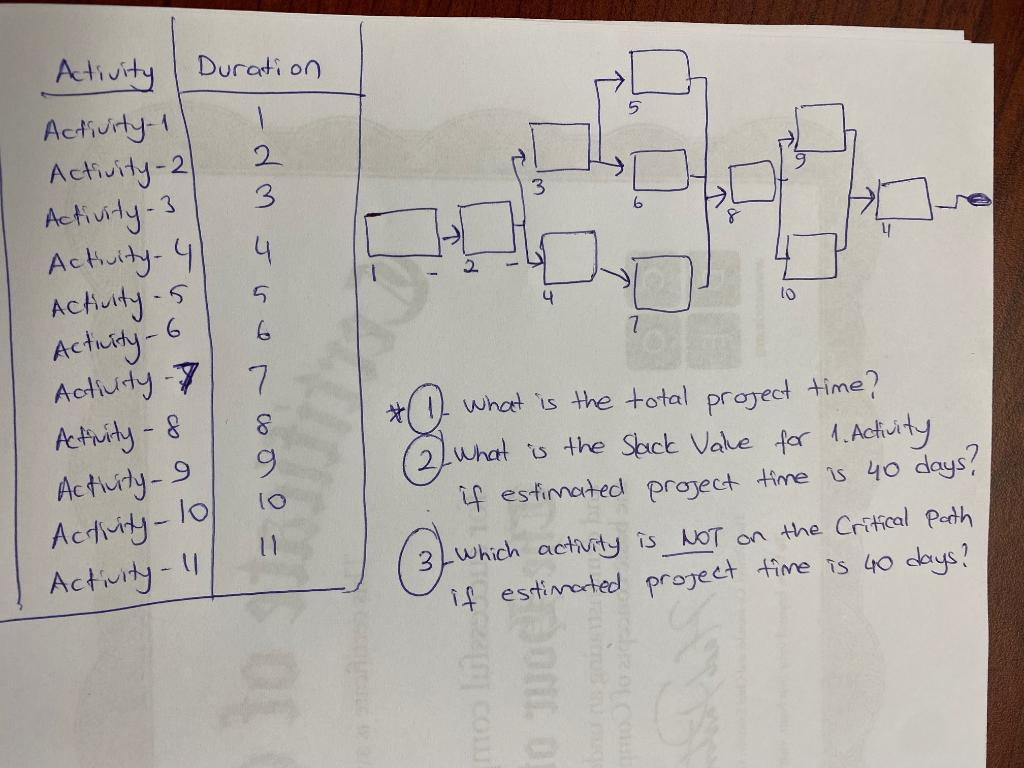 Activity Duration
Activity-1 1
Activity-2 2
Activity-3 3
Activity-4 4
Activity-5 5
Activity-6 6
Activity-7 7
Activity-8 8
Activity-9 9
Activity-10 10
Activity-11 11
5
3
6
9
8
1
2
4
11
10
7
*1- What is the total project time?
2- What is the Slack Value for 1. Activity
if estimated project time is 40 days?
3- Which activity is NOT on the Critical Path
if estimated project time is 40 days?